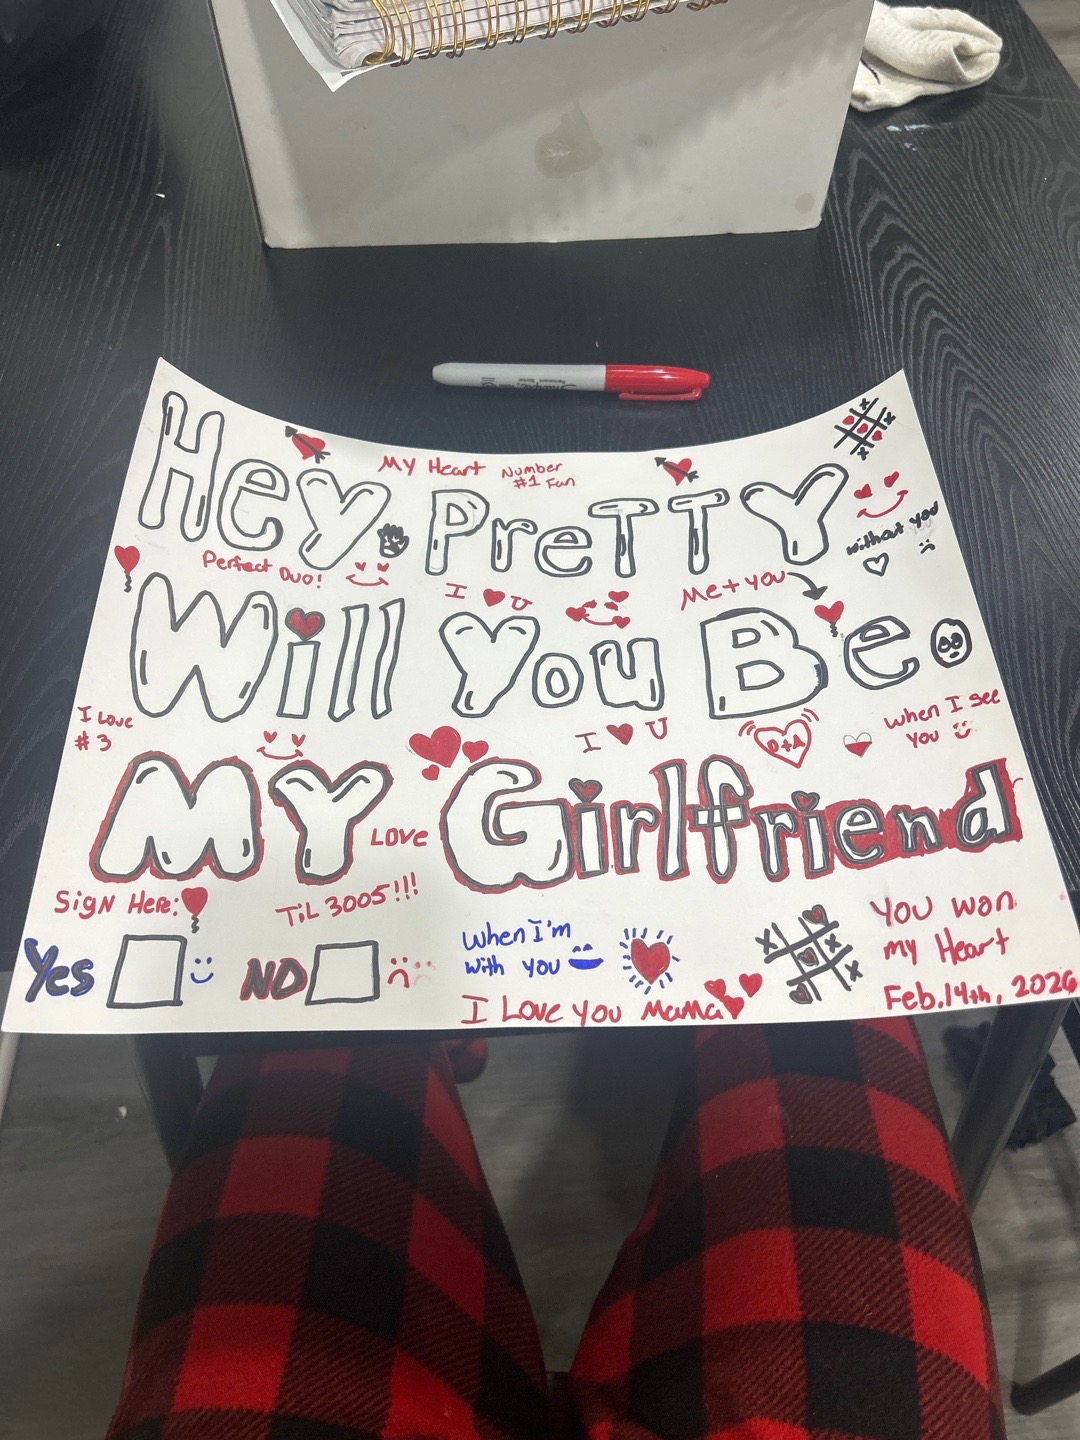 Sharpie
Permanent Marker
Hey Pretty
My Heart
Number
#1 Fan
without you
Perfect Duo!
I ♥ U
Me + you
Will You Be
I Love
# 3
I ♥ U
D+A
when I see
you
My Girlfriend
Love
Sign Here:
Til 3005!!!
Yes
No
When I'm
with you
I Love you Mama
You won
my Heart
Feb.14th, 2026